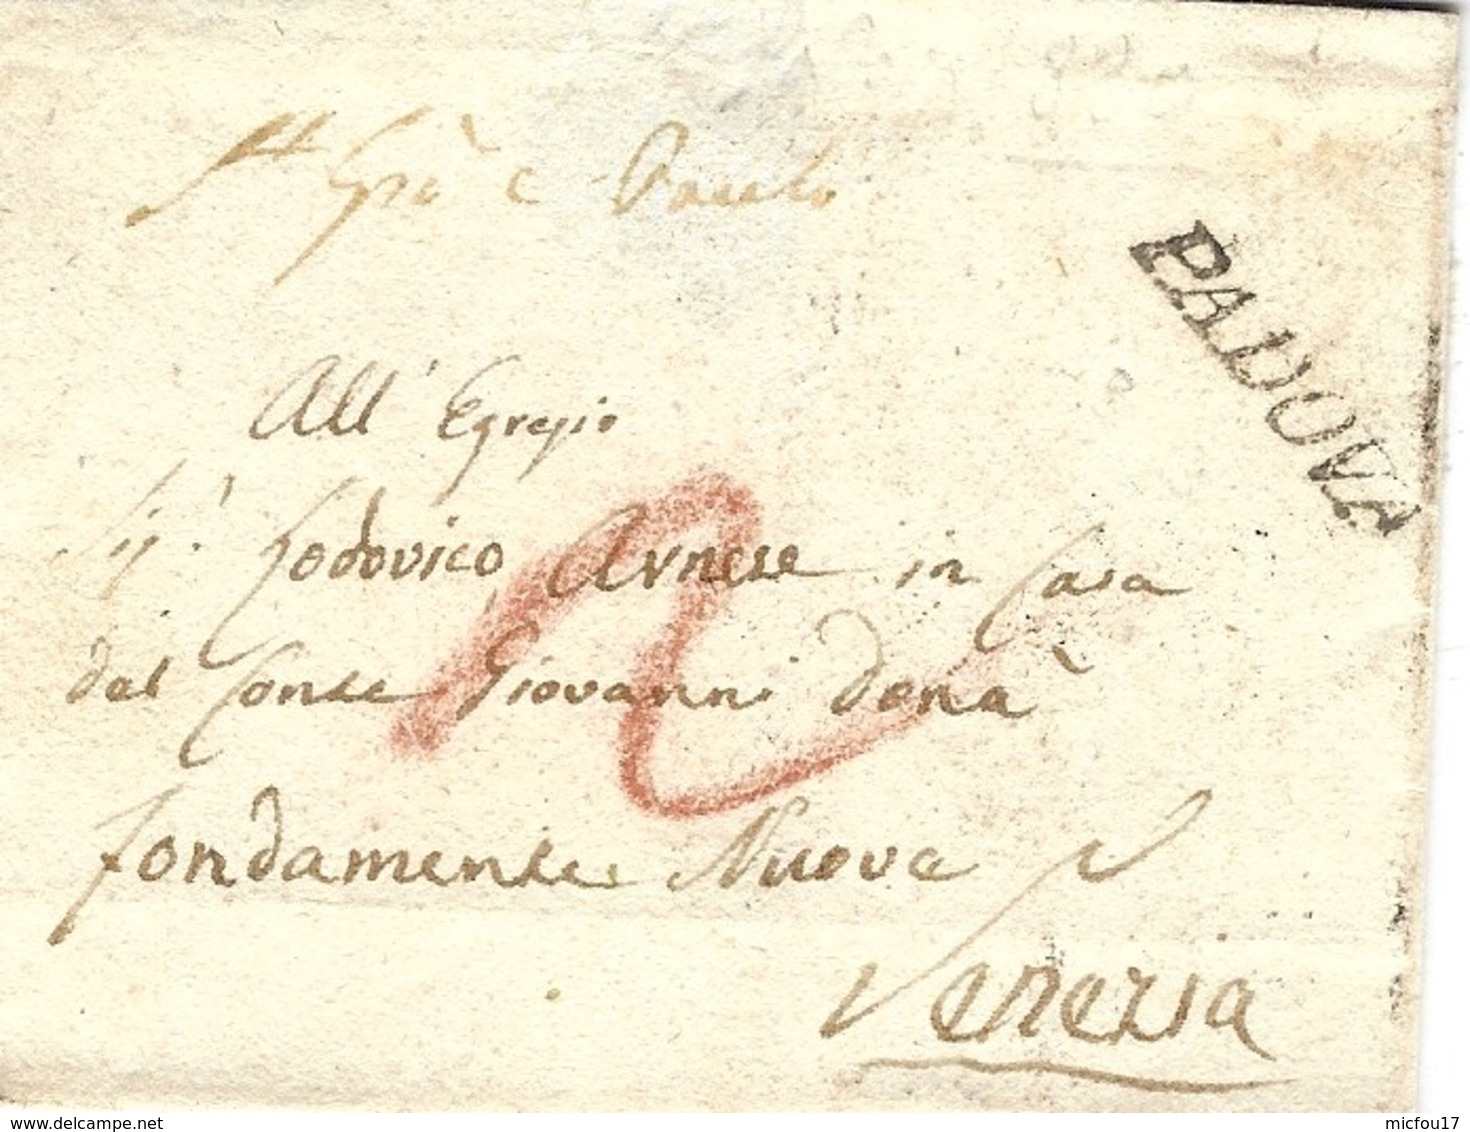 Sti Gio e Paulo
PADOVA
All' Egregio
Sigr. Lodovico Avnese in Casa
del Conte Giovanni Donà
fondamente Nuove
2
Venezia
delcampe.net
micfou17